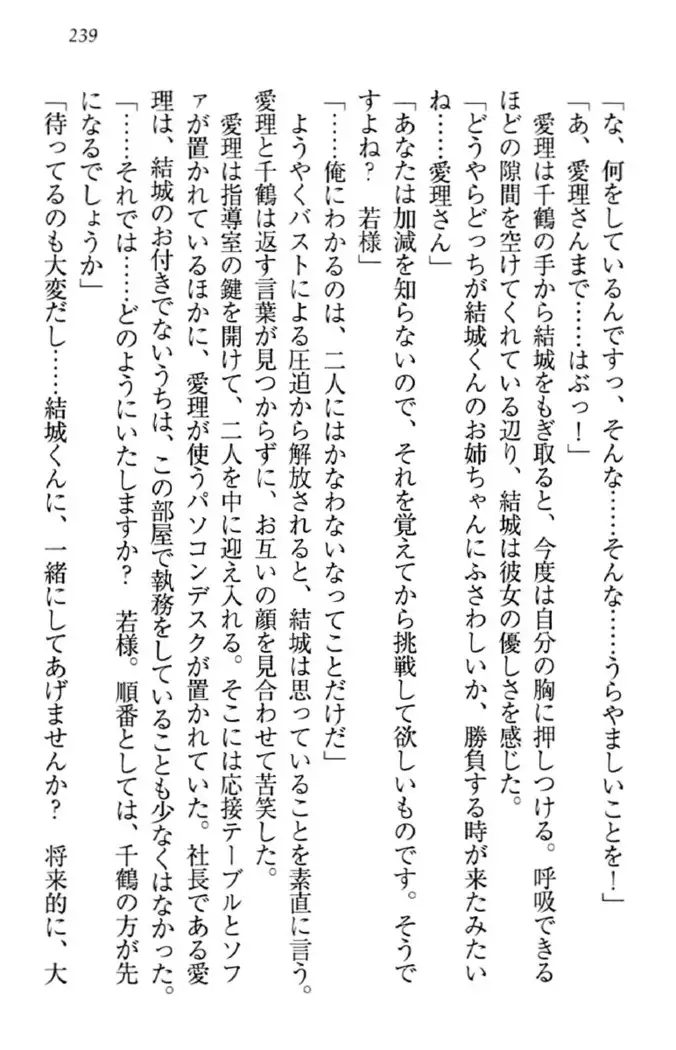 239
「な、何をしているんですっ、そんな……そんな……うらやましいことを！」
「あ、愛理さんまで……はぶっ！」
　愛理は千鶴の手から結城をもぎ取ると、今度は自分の胸に押しつける。呼吸できる
ほどの隙間を空けてくれている辺り、結城は彼女の優しさを感じた。
「どうやらどっちが結城くんのお姉ちゃんにふさわしいか、勝負する時が来たみたい
ね……愛理さん」
「あなたは加減を知らないので、それを覚えてから挑戦して欲しいものです。そうで
すよね？　若様」
「……俺にわかるのは、二人にはかなわないなってことだけだ」
　ようやくバストによる圧迫から解放されると、結城は思っていることを素直に言う。
愛理と千鶴は返す言葉が見つからずに、お互いの顔を見合わせて苦笑した。
　愛理は指導室の鍵を開けて、二人を中に迎え入れる。そこには応接テーブルとソフ
ァが置かれているほかに、愛理が使うパソコンデスクが置かれていた。社長である愛
理は、結城のお付きでないうちは、この部屋で執務をしていることも少なくはなかった。
「……それでは……どのようにいたしますか？　若様。順番としては、千鶴の方が先
になるでしょうか」
「待ってるのも大変だし……結城くんに、一緒にしてあげませんか？　将来的に、大